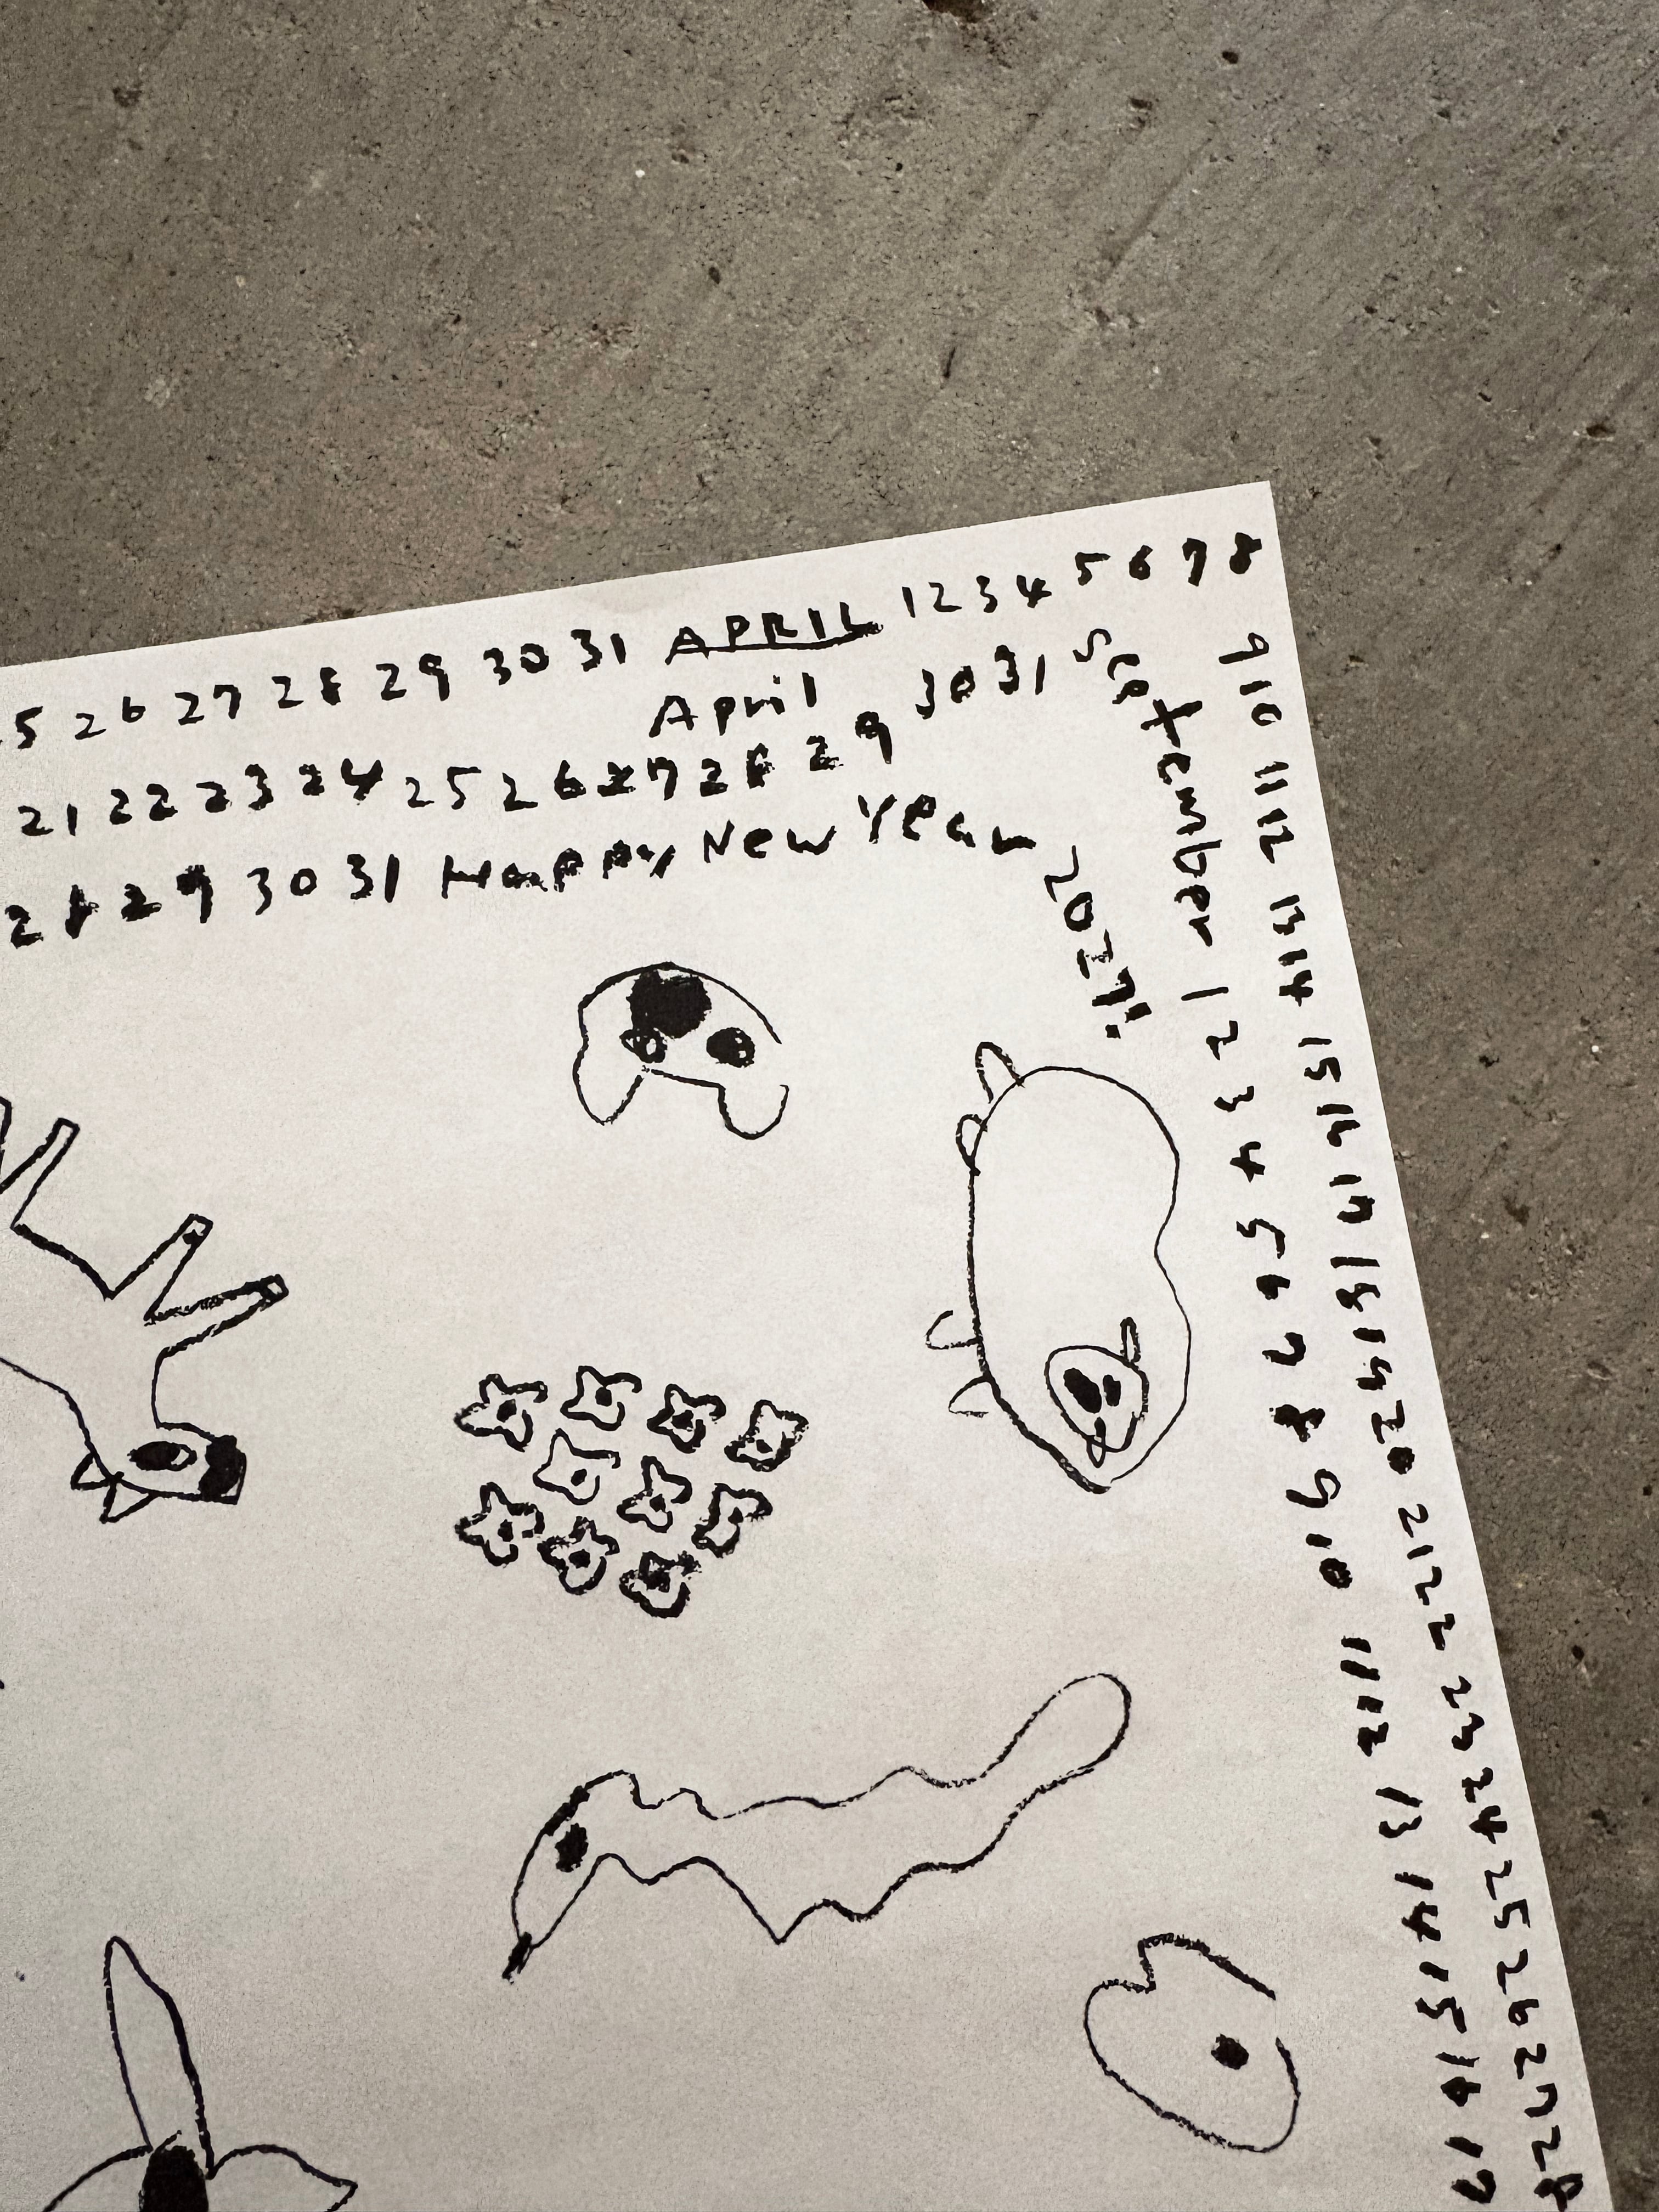 5 26 27 28 29 30 31 APRIL 1 2 3 4 5 6 7 8
9 10 11 12 13 14 15 16 17 18 19 20 21 22 23 24 25 26 27 28
April
21 22 23 24 25 26 27 28 29 30 31 September 1 2 3 4 5 6 7 8 9 10 11 12 13 14 15 16 17
28 29 30 31 Happy New Year